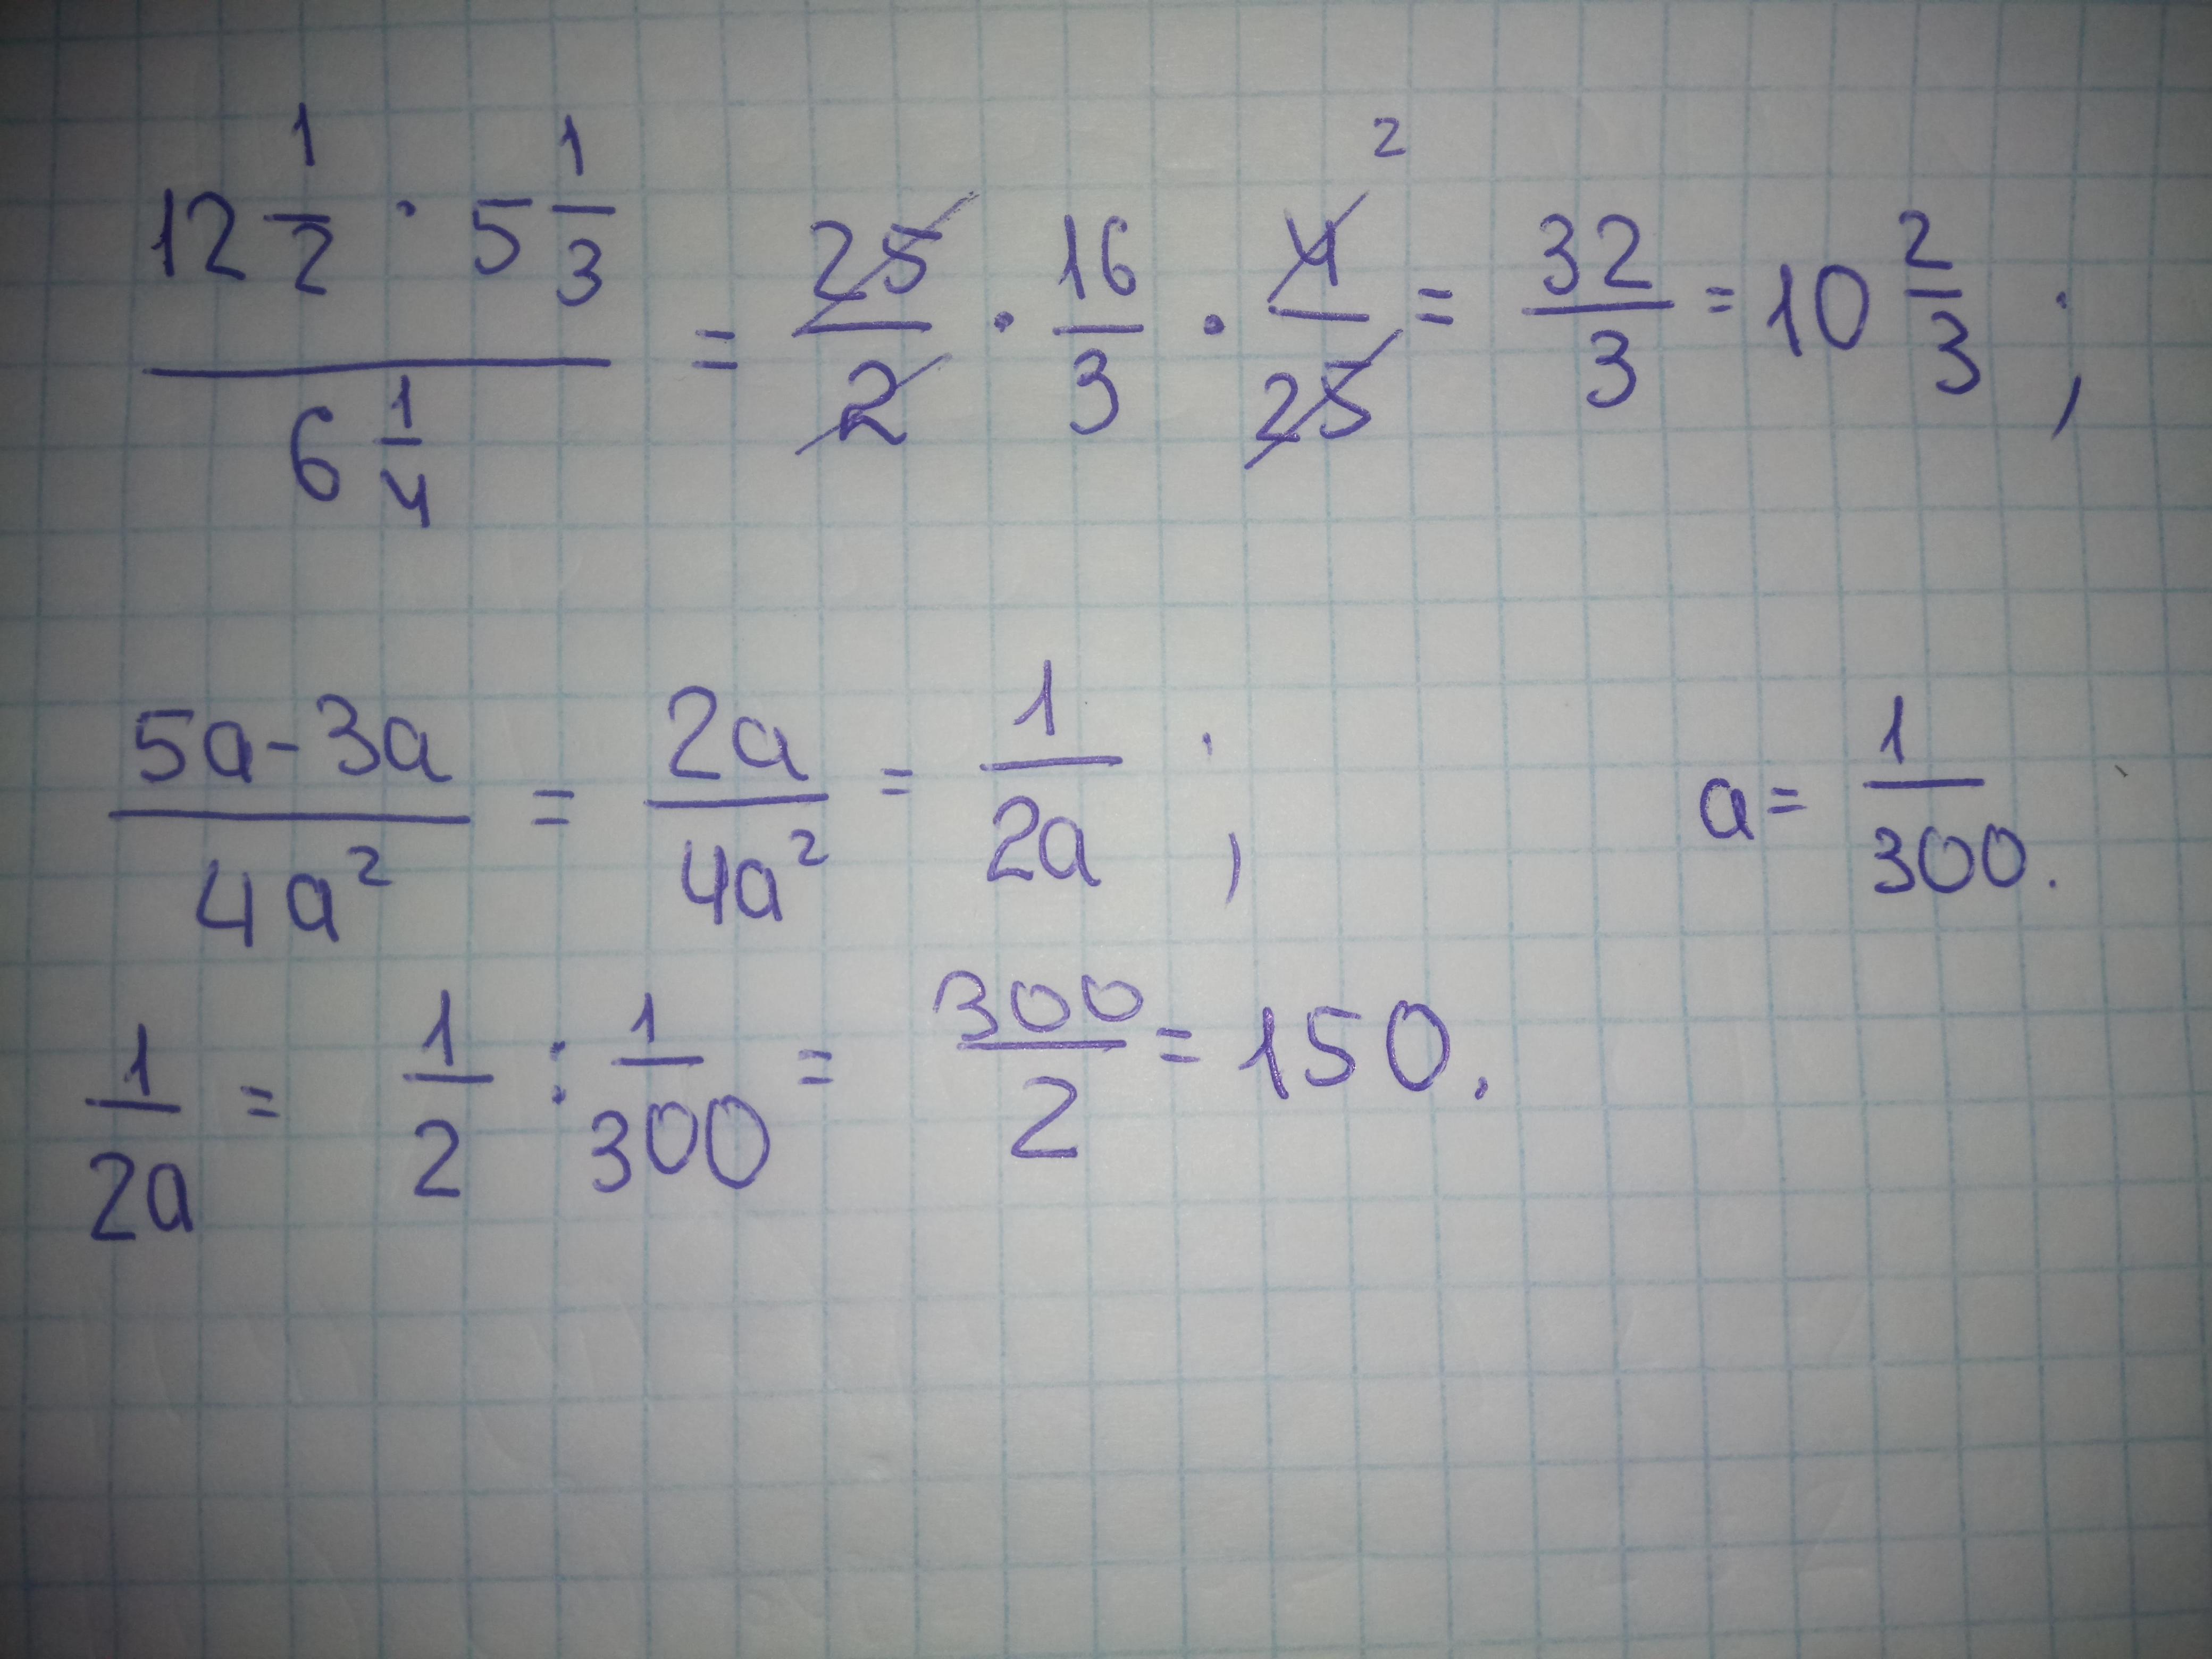 (12 1/2 · 5 1/3) / (6 1/4) = 25/2 · 16/3 · 4/25 2 = 32/3 = 10 2/3 ;
(5a-3a)/(4a²) = 2a/4a² = 1/2a ; a= 1/300.
1/2a = 1/2 : 1/300 = 300/2 = 150.